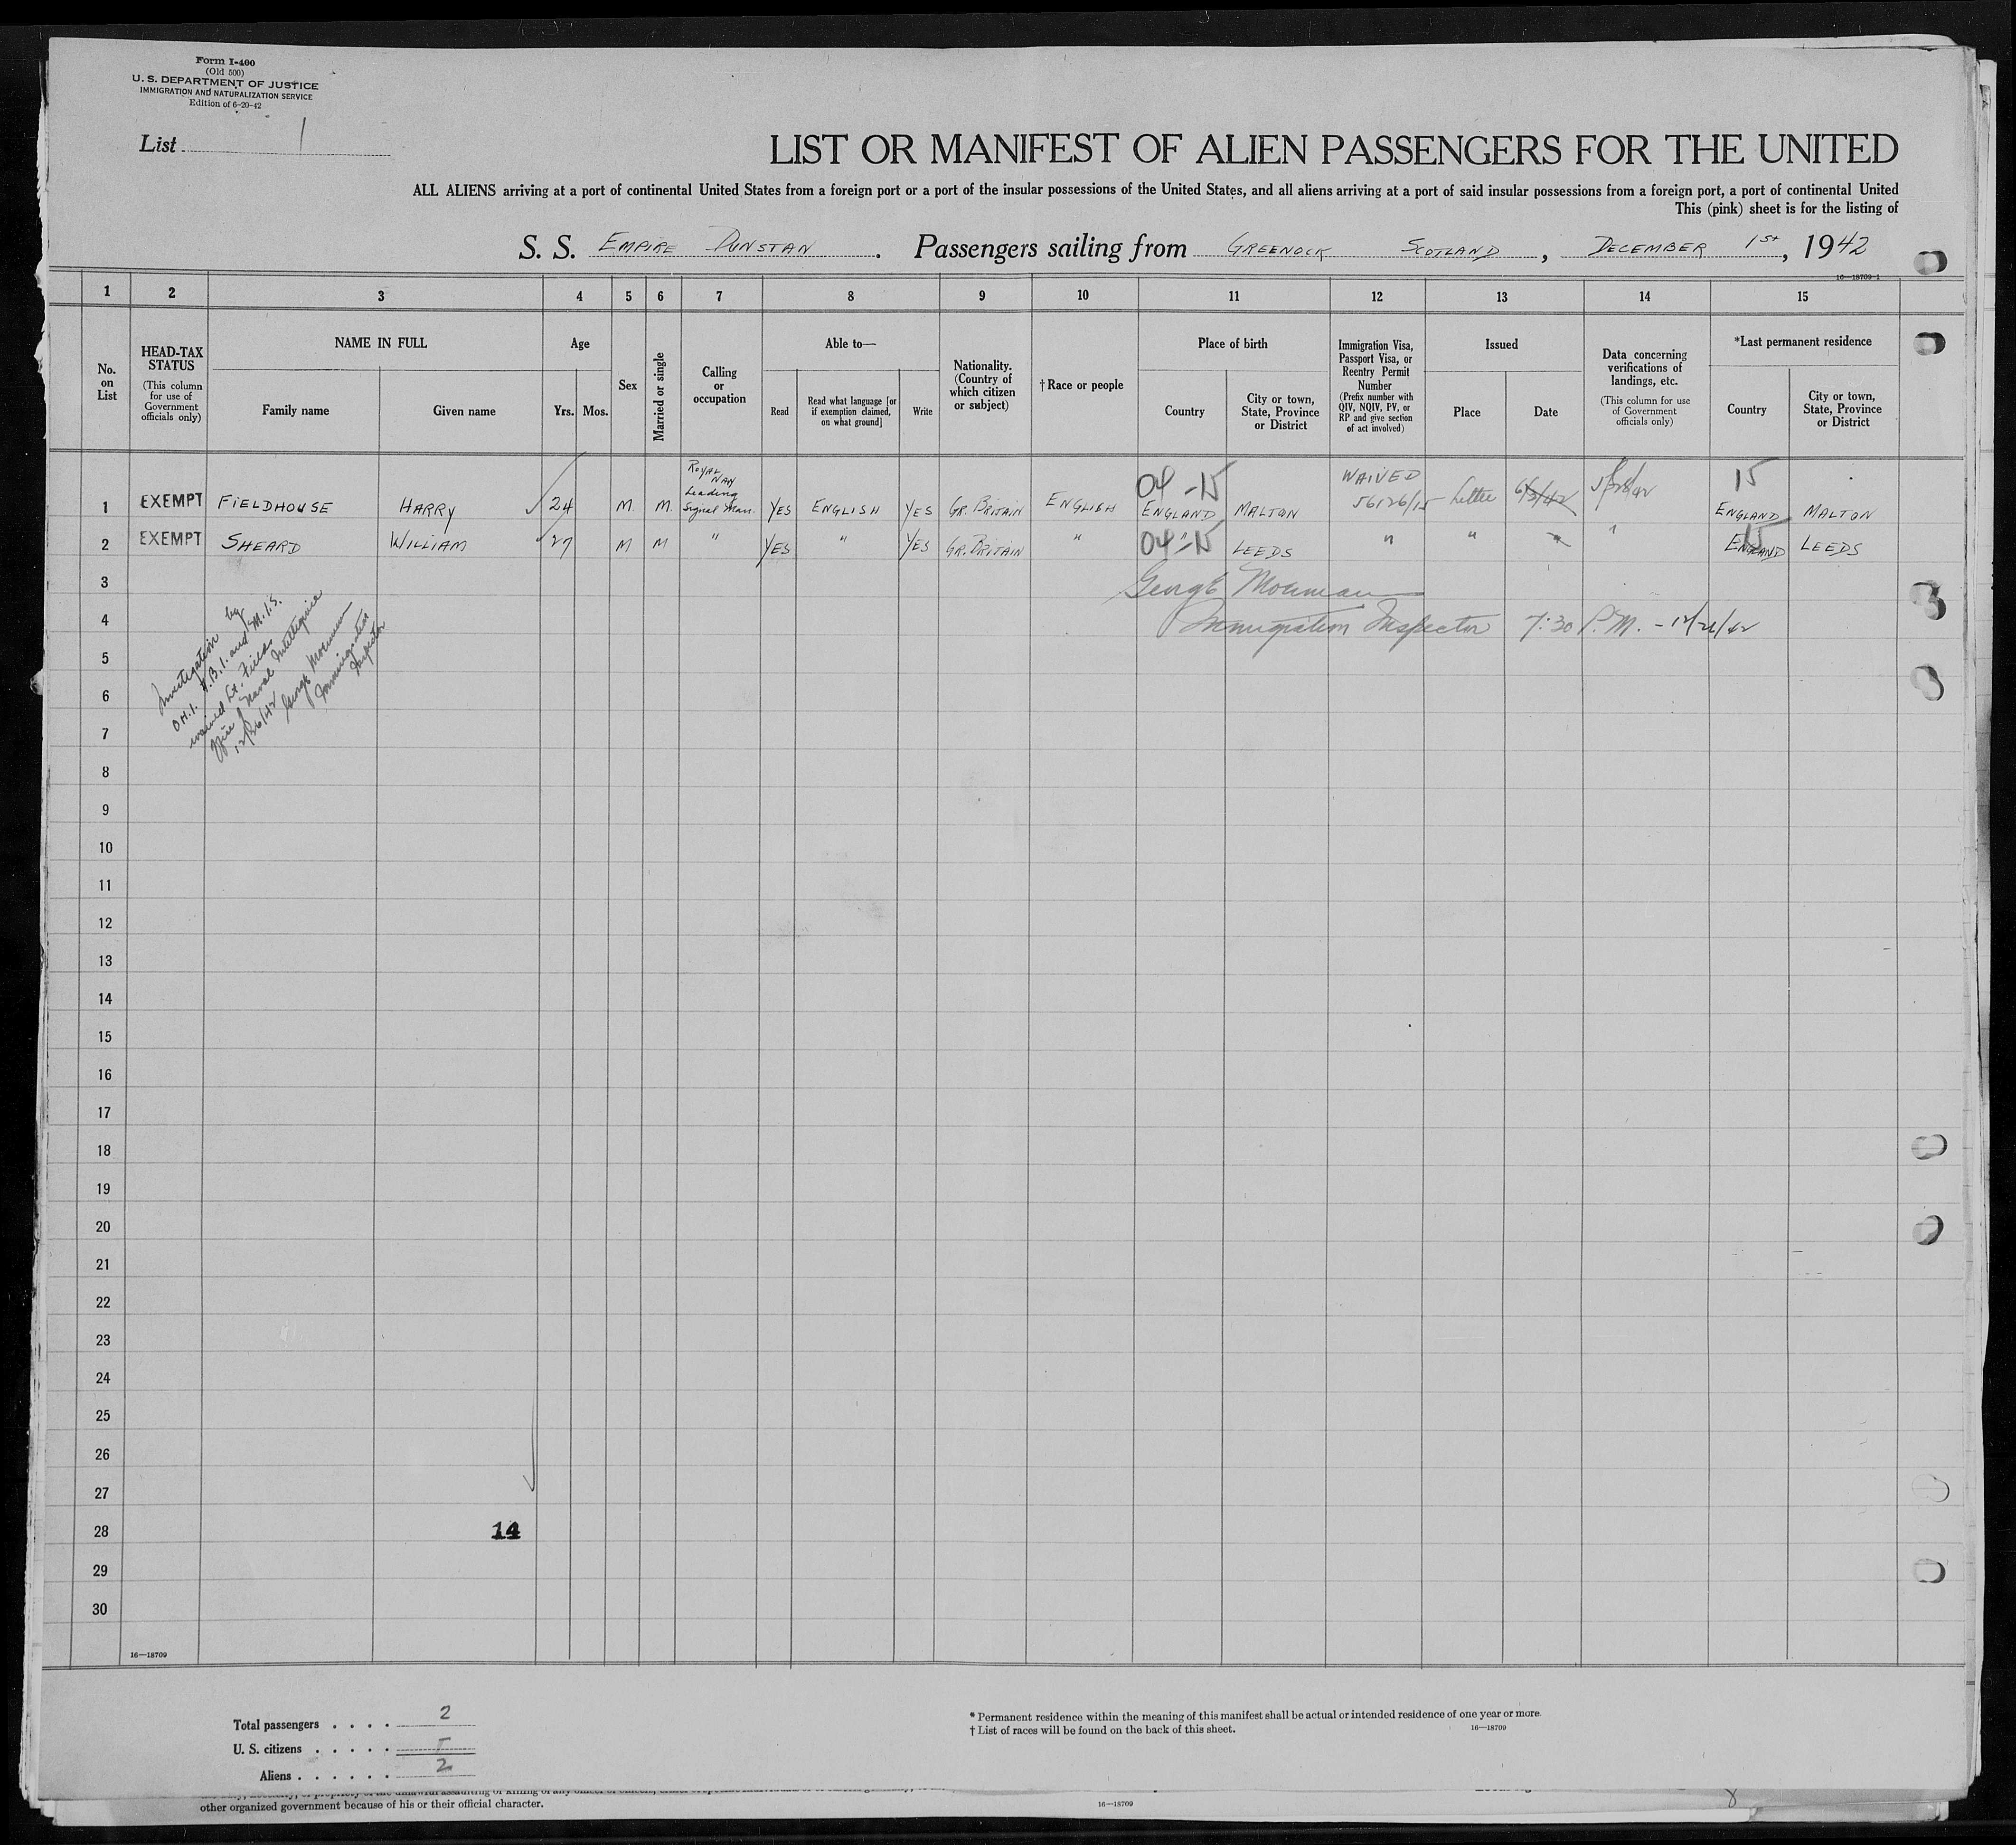 Form I-400
(Old 500)
U. S. DEPARTMENT OF JUSTICE
IMMIGRATION AND NATURALIZATION SERVICE
Edition of 6-20-42
List 1
LIST OR MANIFEST OF ALIEN PASSENGERS FOR THE UNITED
ALL ALIENS arriving at a port of continental United States from a foreign port or a port of the insular possessions of the United States, and all aliens arriving at a port of said insular possessions from a foreign port, a port of continental United
This (pink) sheet is for the listing of
S. S. EMPIRE DUNSTAN. Passengers sailing from GREENOCK SCOTLAND, DECEMBER 1st, 1942
16—18709-1
1 2 3 4 5 6 7 8 9 10 11 12 13 14 15
No. on List
HEAD-TAX STATUS
(This column for use of Government officials only)
NAME IN FULL
Family name
Given name
Age
Yrs. Mos.
Sex
Married or single
Calling or occupation
Able to—
Read
Read what language [or if exemption claimed, on what ground]
Write
Nationality. (Country of which citizen or subject)
† Race or people
Place of birth
Country
City or town, State, Province or District
Immigration Visa, Passport Visa, or Reentry Permit Number
(Prefix number with QIV, NQIV, PV, or RP and give section of act involved)
Issued
Place
Date
Data concerning verifications of landings, etc.
(This column for use of Government officials only)
*Last permanent residence
Country
City or town, State, Province or District
1 EXEMPT FIELDHOUSE HARRY 24 M. M. ROYAL NAV Leading Signal Man. YES ENGLISH YES GR. BRITAIN ENGLISH 04-15 ENGLAND MALTON WAIVED 56126/15 Letter 15 ENGLAND MALTON
2 EXEMPT SHEARD WILLIAM 27 M M " YES " YES GR. BRITAIN " 04-15 " LEEDS " " " 15 ENGLAND LEEDS
3
George
4
Immigration Inspector 7:30 P.M. -
5
6
7
8
9
10
11
12
13
14
15
16
17
18
19
20
21
22
23
24
25
26
27
28
29
30
Investigation by
O.N.I. F.B.I. and M.I.S.
waived Lt. Fields
Office of Naval Intelligence
12/26/42 George
Immigration
Inspector
14
16—18709
Total passengers . . . . 2
U. S. citizens . . . . .
Aliens . . . . . . 2
* Permanent residence within the meaning of this manifest shall be actual or intended residence of one year or more.
† List of races will be found on the back of this sheet.
16—18709
other organized government because of his or their official character.
16—18709